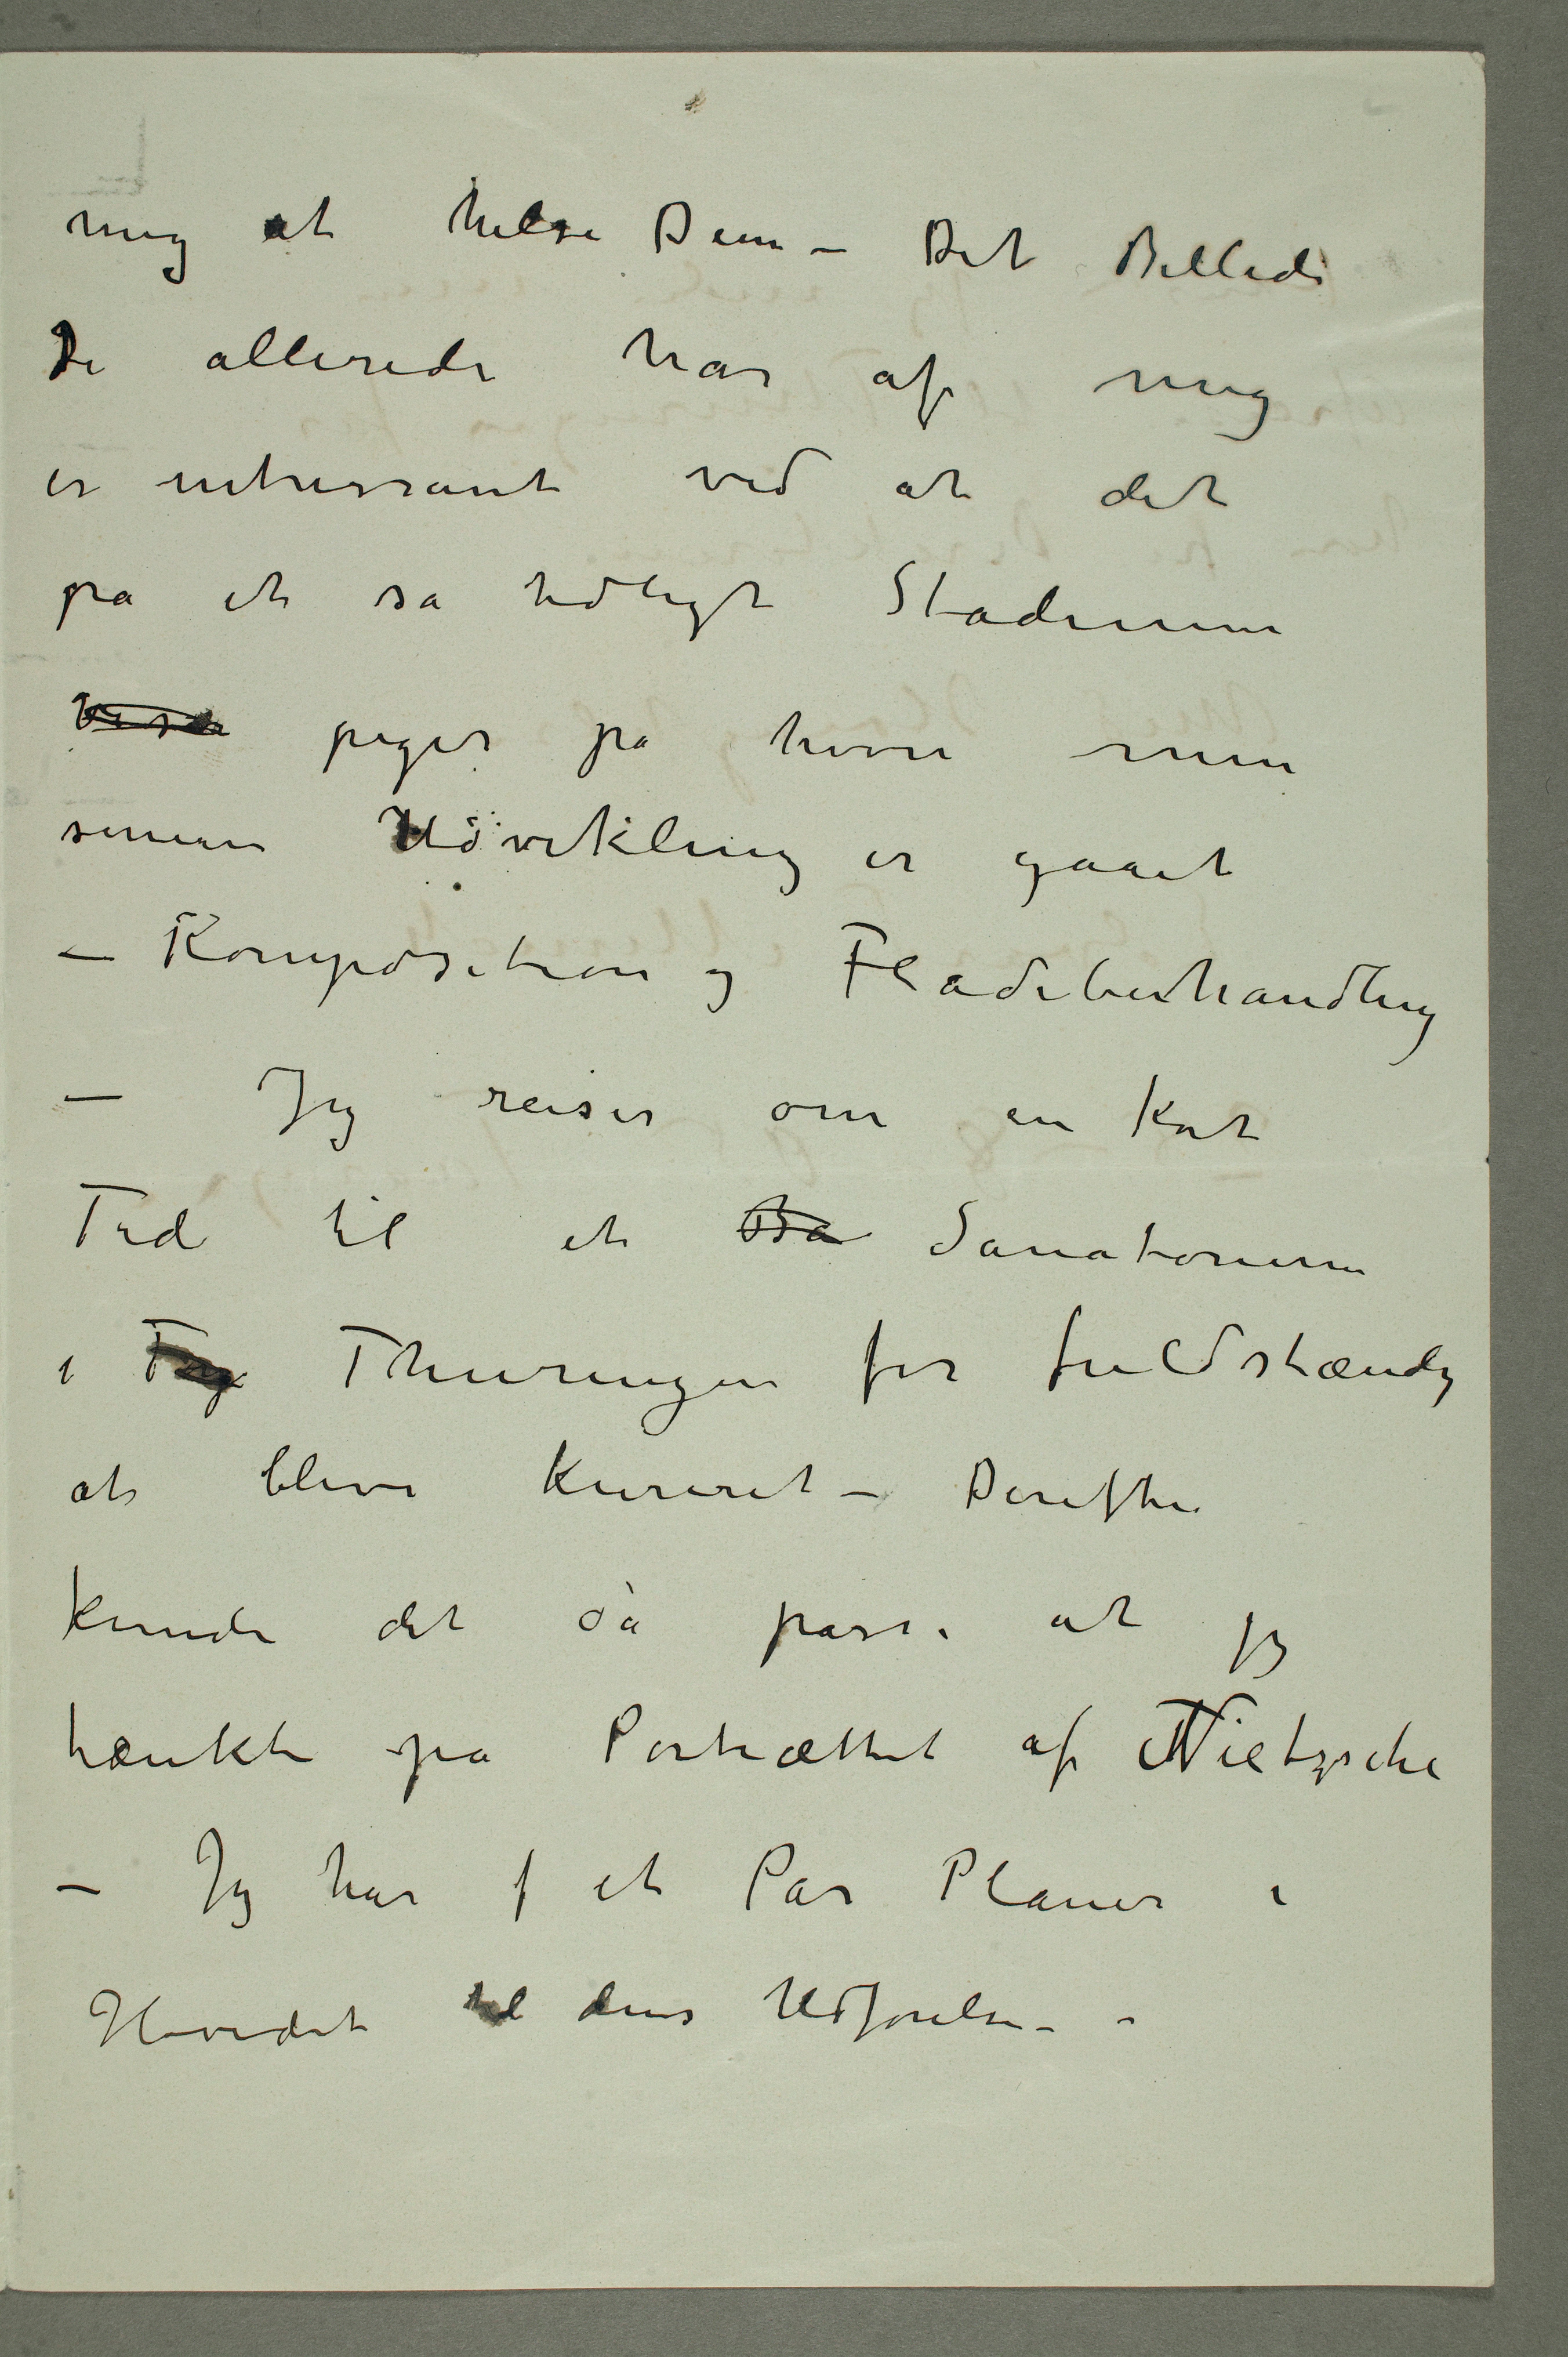 mig at hilse Dem – Det Billede
De allerede har af mig
er intressant ved at det
på et så tidligt Stadium
viser peger på hvor min
senere Udvikling er gaaet
– Komposition og Fladebehandling
– Jeg reiser om en kort
Tid til et Ba Sanatorium
i Thuringen for fuldstændig
at blive kureret – Derefter
kunde det så passe at jeg
tænkte på Portrættet af Nietzsche
– Jeg har f et Par Planer i
Hovedet til dens Udførelse –